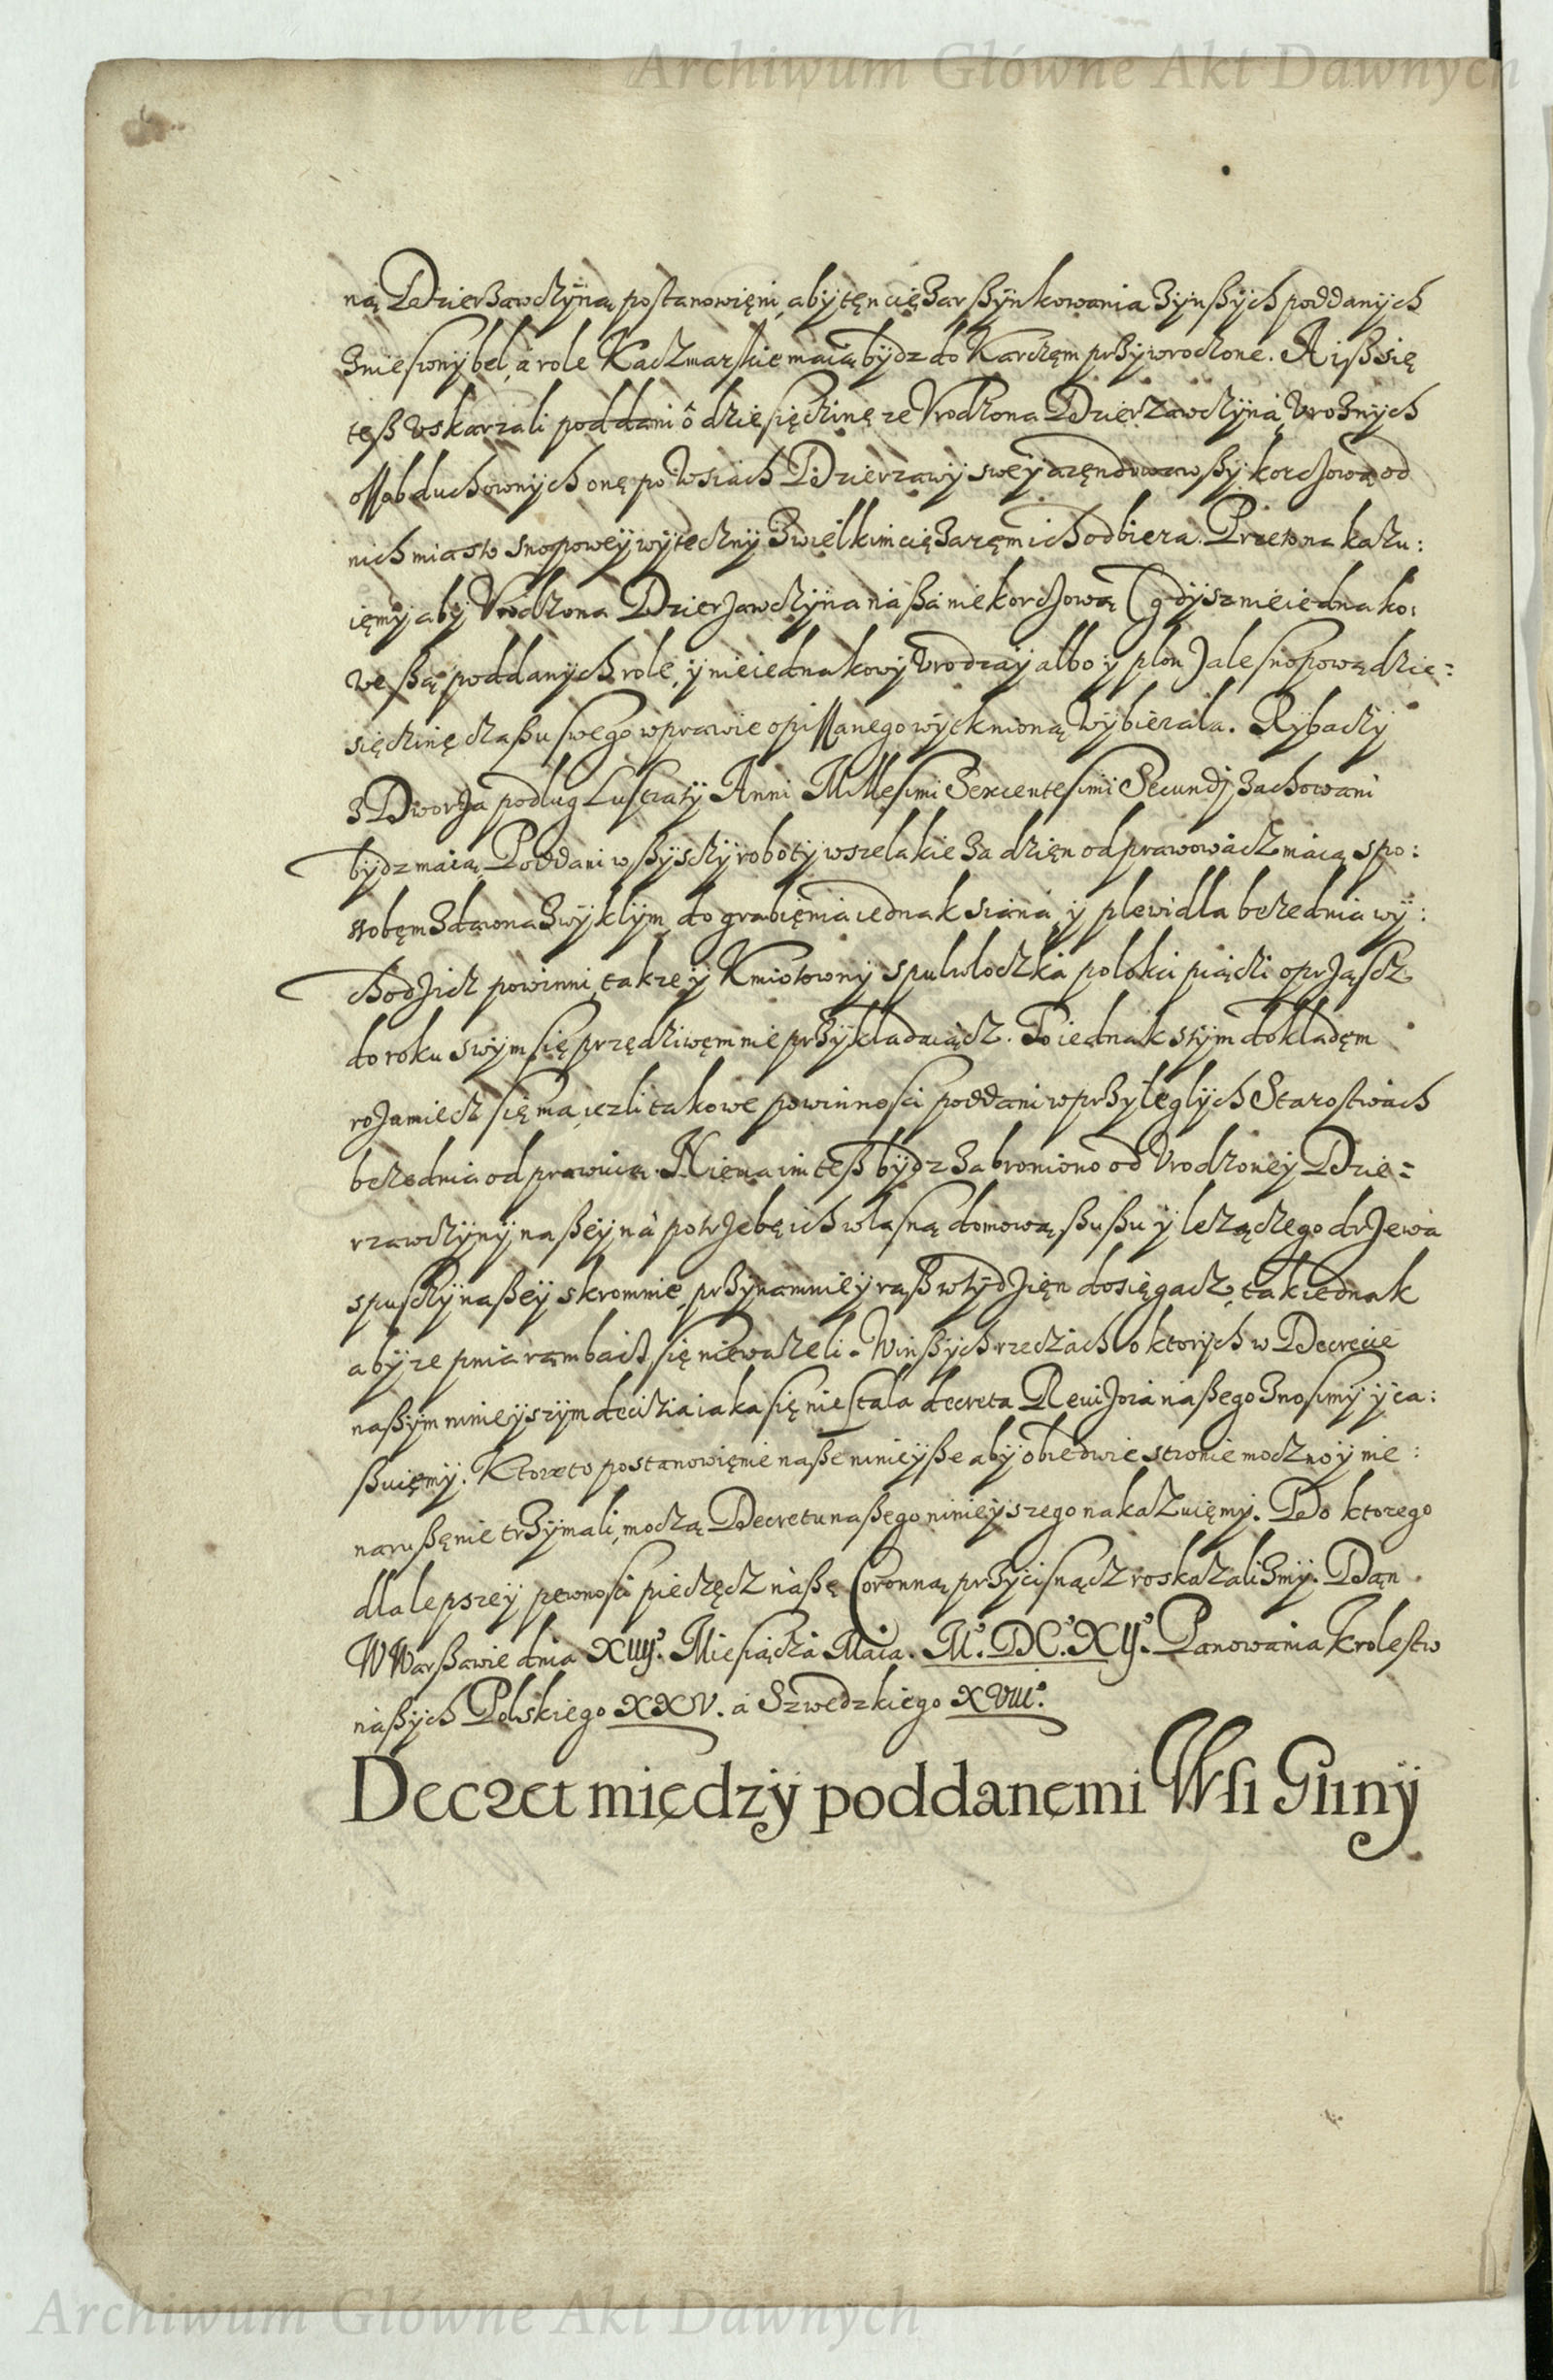 Archiwum Główne Akt Dawnych
ną Dzierżawczÿną postanowięni, abÿ tęn ciężar ßÿnkowania z ÿnßÿch poddanÿch
zniesionÿ bel, a role Kaczmarskie maią bÿdz do Karczęm przÿwroczone. A iß się
teß vskarzali poddani o dziesięczinę ze Vrodzona Dzierzawczÿna v roznÿch
ossob duchownÿch onę po wsiach Dzierzawÿ sweÿ arędowawßÿ korczową od
nich miasto snopoweÿ wÿtecznÿ z wielkim ciężaręm ich odbiera. Przeto nakazu:
ięmÿ abÿ Vrodzona Dzierzawczÿna naßa nie korczową (gdÿsz nieiednako:
we ßą poddanÿch role, ÿ nieiednakowÿ vrodzaÿ albo ÿ plon) ale snopową dzie=
sięczinę czaßu swego w prawie opissanego wÿtknioną wÿbierala. Rÿbaczÿ
z Dworza podlug Lustratÿ Anni Millesimi Sexcentesimi Secundi zachowani
bÿdz maią. Poddani wßÿsczÿ robotÿ wszelakie za dzięn odprawowacz maią spo:
sobęm zdawna zwÿklÿm, do grabięnia iednak siana, ÿ plewidla bezednia wÿ:
chodzicz powinni, takze ÿ Kmiotownÿ s pulwloczka polokci piączi oprząscz
do roku swÿm się przędziwęm nie przÿkladaiącz. To iednak s tÿm dokladęm
rozamiecz się ma, iezli takowe powinnosci poddani w przÿleglÿch Starostwach
bezednia odprawuią. Nie ma im teß bÿdz zabroniono od Vrodzoneÿ Dzie=
rzawczÿnÿ naßeÿ na potrzebę ich wlasną domową ßußu ÿ lezączego drzewa
s pusczÿ naßeÿ skromnie, przÿnamnieÿ raß w tÿdzięn dosięgacz, tak iednak
abÿ ze pnia rambacz się nie wazeli. W inßÿch rzeczach o ktorÿch w Decrecie
naßÿm ninieÿszÿm deciziia iaka się nie stala decreta Reuizora naßego znosimÿ ÿ ca:
ßuięmÿ. Ktore to postanowięnie naße ninieÿße abÿ obiedwie stronie moczno ÿ nie:
narußęnie trzÿmali, moczą Decretu naßego ninieÿszego nakazuięmÿ. Do ktorego
dla lepszeÿ pewnosci pieczęcz naßę Coronną przÿcisnącz roskazalizmÿ. Dan
W Warßawie dnia XIIIJ. Miesiącza Maia. Mº. DCº. XIJº. Panowania Krolestw
naßÿch Polskiego XXV. a Szwedzkiego XVIIIº.
Decret międzÿ poddanęmi Wsi Glinÿ
Archiwum Główne Akt Dawnych